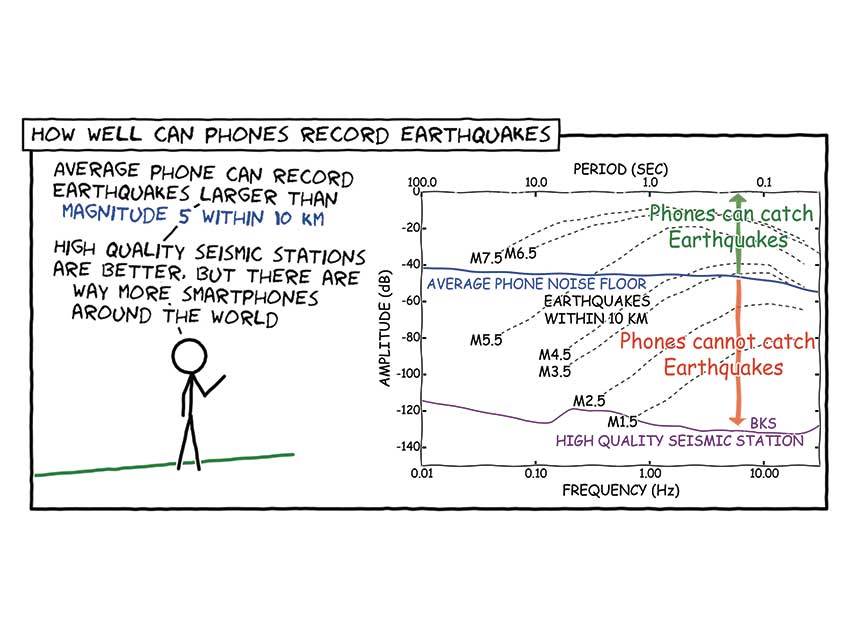 HOW WELL CAN PHONES RECORD EARTHQUAKES
AVERAGE PHONE CAN RECORD
EARTHQUAKES LARGER THAN
MAGNITUDE 5 WITHIN 10 KM
HIGH QUALITY SEISMIC STATIONS
ARE BETTER, BUT THERE ARE
WAY MORE SMARTPHONES
AROUND THE WORLD
PERIOD (SEC)
100.0 10.0 1.0 0.1
0
-20
-40
-60
-80
-100
-120
-140
AMPLITUDE (dB)
Phones can catch
Earthquakes
M7.5 M6.5
AVERAGE PHONE NOISE FLOOR
EARTHQUAKES
WITHIN 10 KM
M5.5
Phones cannot catch
Earthquakes
M4.5
M3.5
M2.5
M1.5
BKS
HIGH QUALITY SEISMIC STATION
0.01 0.10 1.00 10.00
FREQUENCY (Hz)